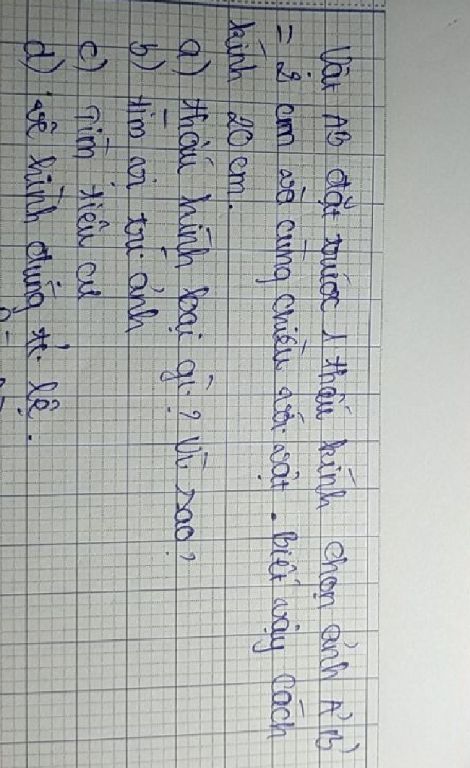 Vật AB đặt trước 1 thấu kính chọn ảnh A'B'
= 2 cm và cùng chiều với vật. biết vậy cách
kính 20 cm.
a) thấu kính loại gì? Vì sao?
b) tìm vị trí ảnh
c) Tìm tiêu cự
d) vẽ hình đúng tỉ lệ.